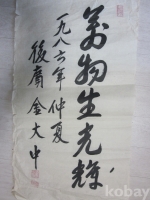 萬物生光輝
一九八六年 仲夏
後廣 金大中
kobay